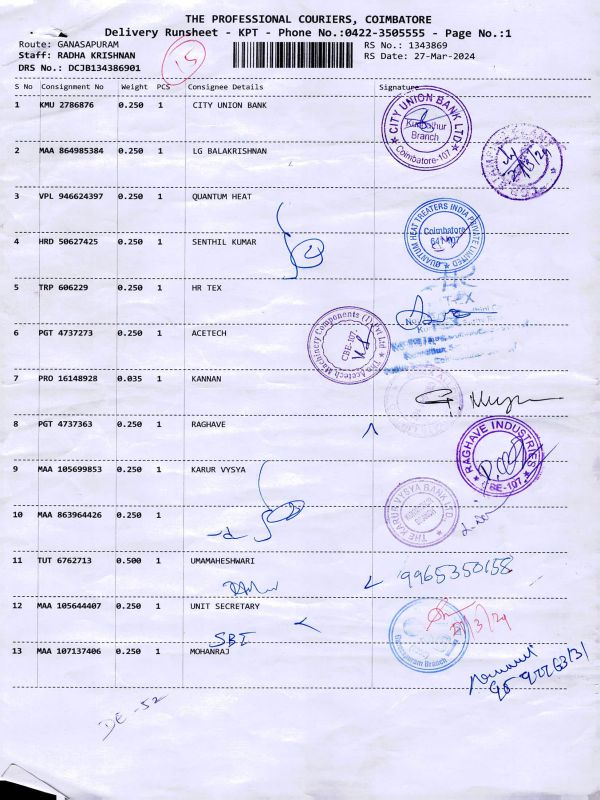 THE PROFESSIONAL COURIERS, COIMBATORE
Delivery Runsheet - KPT - Phone No.:0422-3505555 - Page No.:1
Route: GANASAPURAM RS No.: 1343869
Staff: RADHA KRISHNAN RS Date: 27-Mar-2024
DRS No.: DCJB134386901 15
S No Consignment No Weight PCS Consignee Details Signature
1 KMU 2786876 0.250 1 CITY UNION BANK
CITY UNION BANK LTD Branch Coimbatore-107
2 MAA 864985384 0.250 1 LG BALAKRISHNAN
3 VPL 946624397 0.250 1 QUANTUM HEAT
QUANTUM HEAT TREATERS INDIA PRIVATE LIMITED Coimbatore
4 HRD 50627425 0.250 1 SENTHIL KUMAR
5 TRP 606229 0.250 1 HR TEX
HR TEX
6 PGT 4737273 0.250 1 ACETECH
Acetech Machinery Components (I) Pvt Ltd CBE-107
7 PRO 16148928 0.035 1 KANNAN
8 PGT 4737363 0.250 1 RAGHAVE
RAGHAVE INDUSTRIES CBE-107
9 MAA 105699853 0.250 1 KARUR VYSYA
THE KARUR VYSYA BANK LTD.
10 MAA 863964426 0.250 1
11 TUT 6762713 0.500 1 UMAMAHESHWARI
9965350158
12 MAA 105644407 0.250 1 UNIT SECRETARY
SBI
Ganesapuram Branch
13 MAA 107137406 0.250 1 MOHANRAJ
DE-52